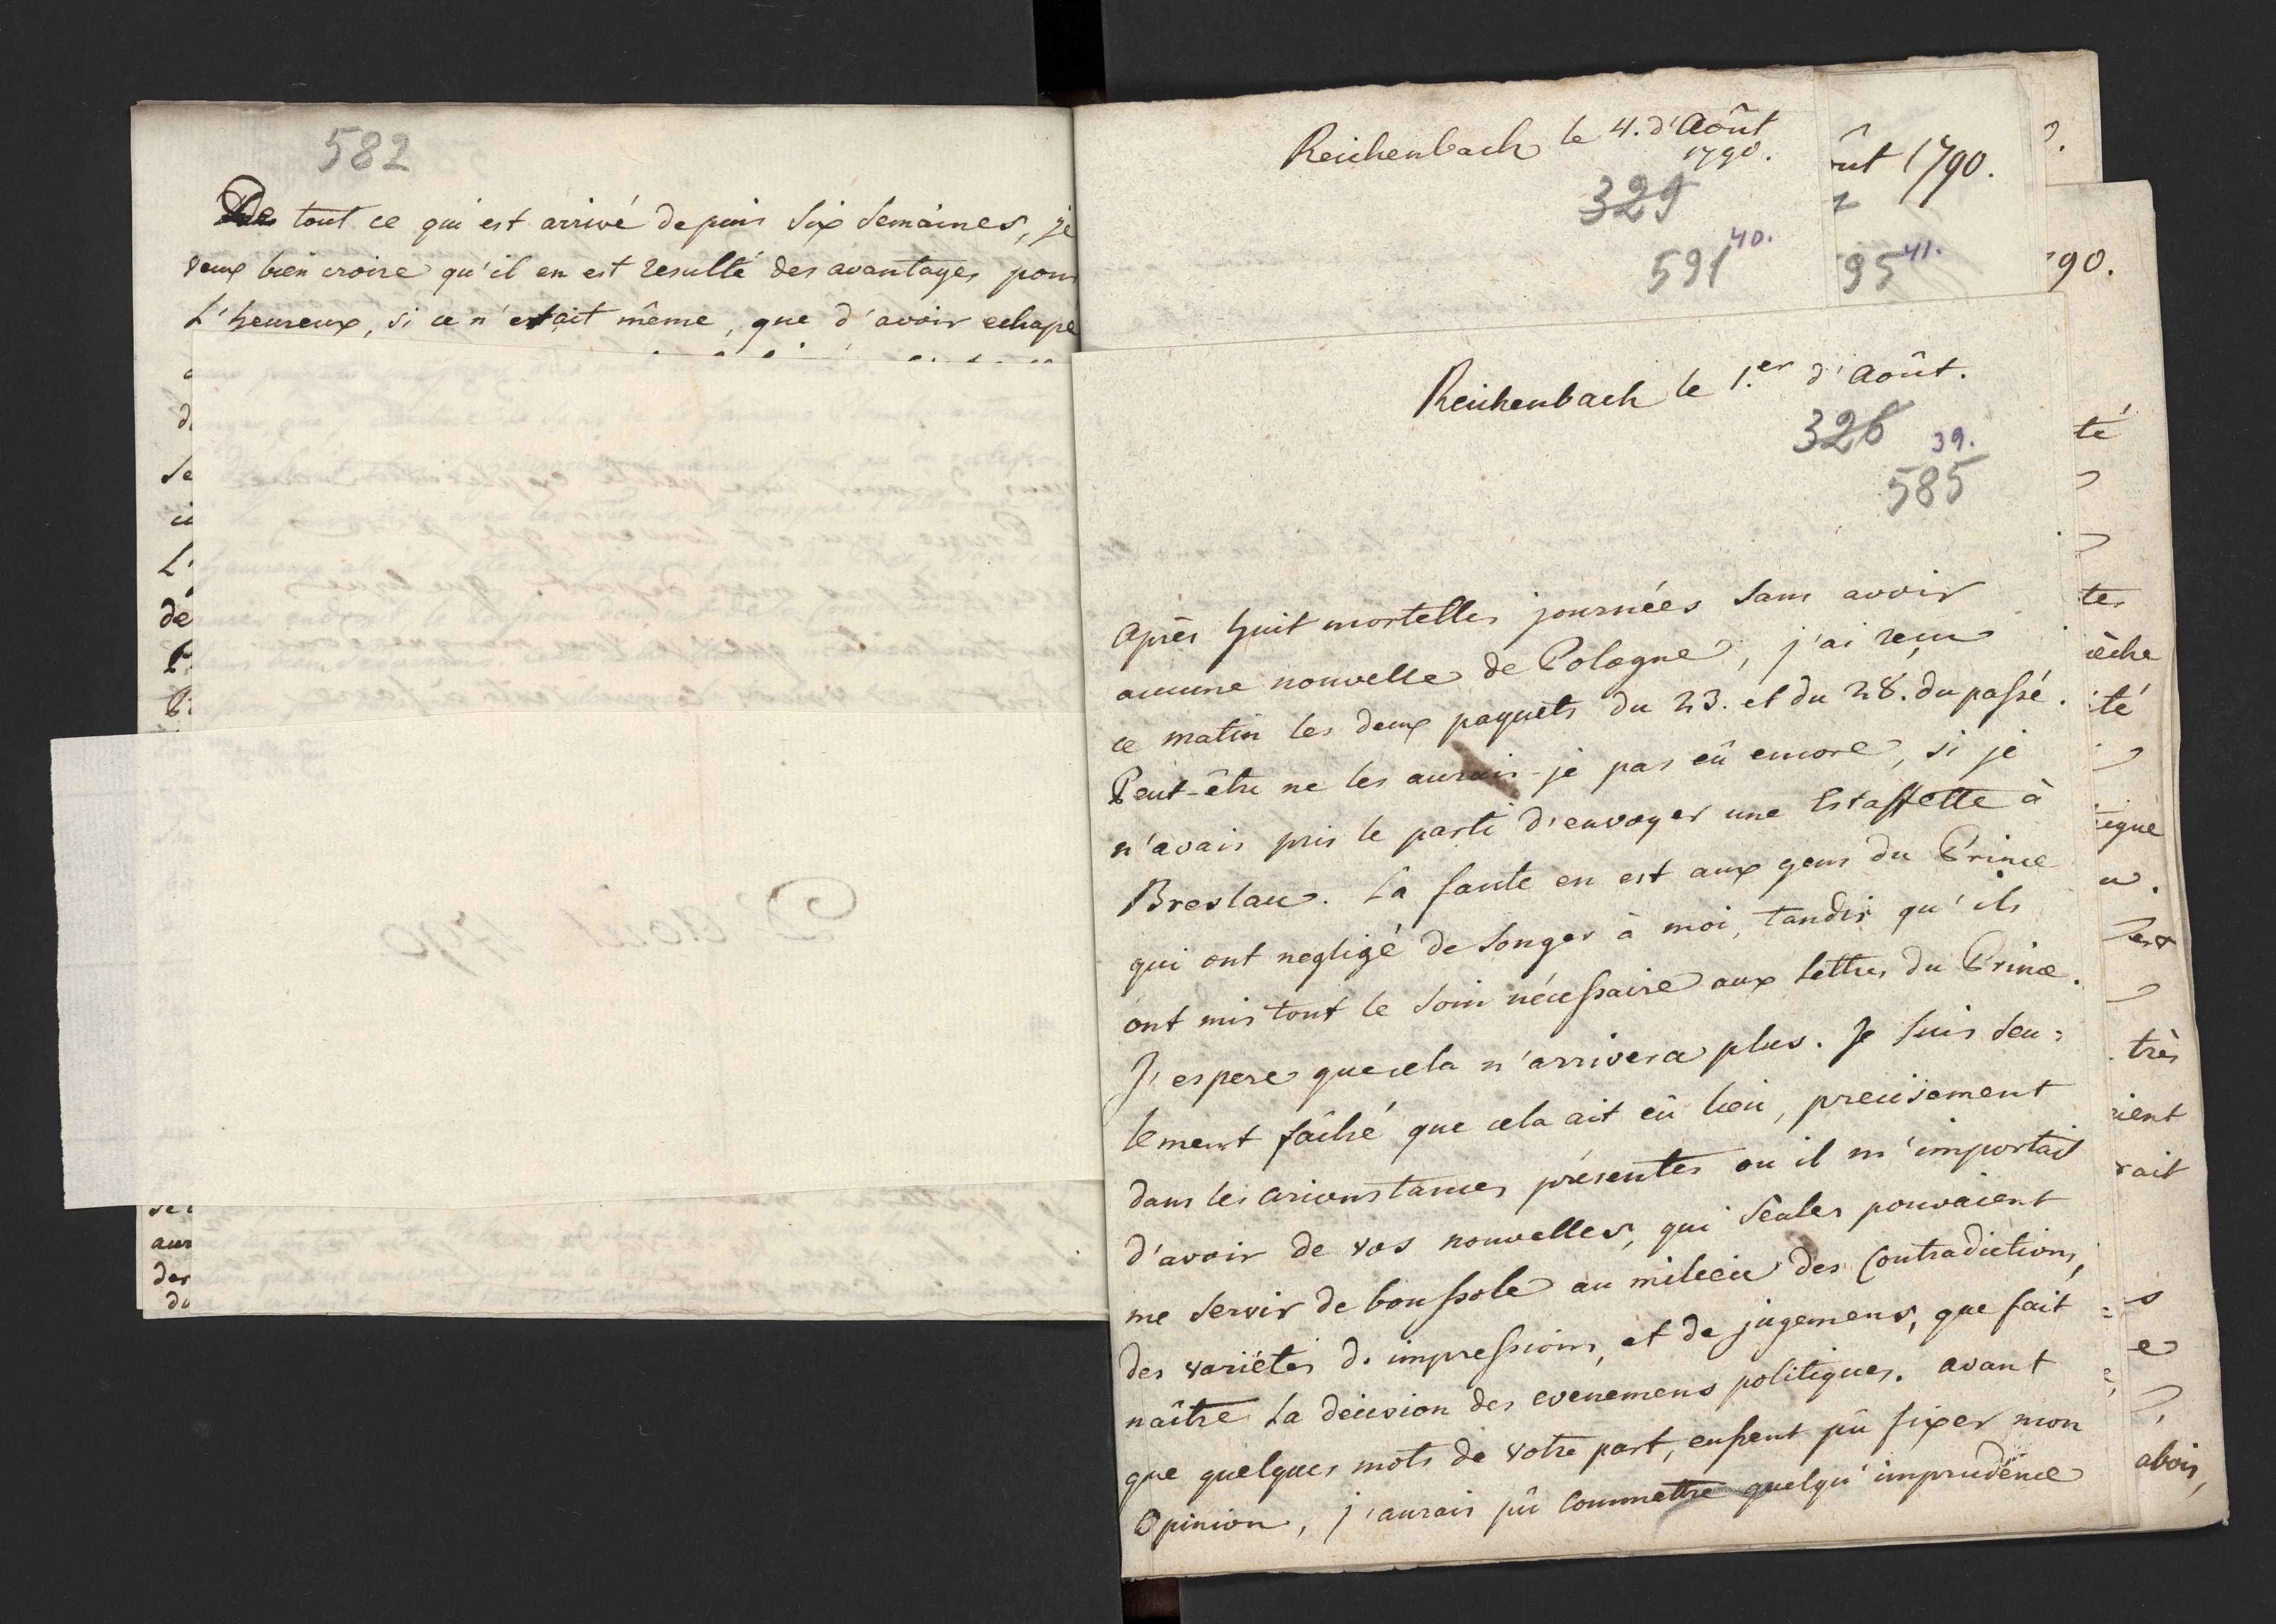 582
De tout ce qui est arrivé depuis six semaines, je
veux bien croire qu'il en est resulté des avantages pour
L'heureux, si ce n'etait même, que d'avoir echapé
de
aur
der
Reichenbach le 4. d'Août
1790.
329
40.
591
ût 1790.
41.
95
90.
Reichenbach le 1.er d'Août.
326
39.
585
Après huit mortelles journées sans avoir
aucune nouvelle de Pologne, j'ai reçu
ce matin les deux paquets du 23. et du 28. du passé.
Peut-être ne les aurais-je pas eû encore, si je
n'avais pris le parti d'envoyer une Estaffette à
Breslau. La faute en est aux gens du Prince
qui ont negligé de songer à moi, tandis qu'ils
ont mis tout le soin nécessaire aux lettres du Prince.
J'espere que cela n'arrivera plus. Je suis seu=
lement fâché que cela ait eû lieu, precisement
dans les circonstances présentes ou il m'importait
d'avoir de vos nouvelles, qui seules pouvaient
me servir de boussole au milieu des Contradictions,
des varietés d'impressions, et de jugemens, que fait
naître la decision des evenemens politiques. avant
que quelques mots de votre part, eussent pû fixer mon
Opinion, j'aurais pû commettre quelqu'imprudence
té
tes
èche
ité
très
rient
rait
abois,
D'Août 1790